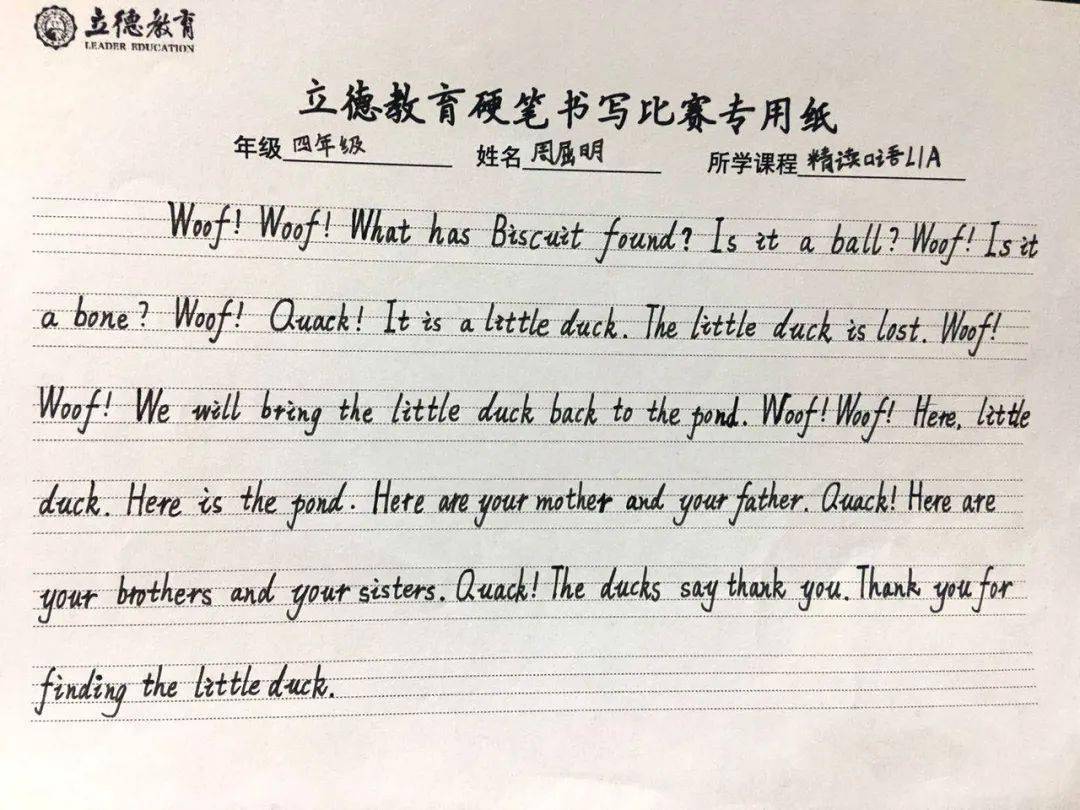 立德教育
LEADER EDUCATION
立德教育硬笔书写比赛专用纸
年级 四年级 姓名 周屈明 所学课程 精读口语L1A
Woof! Woof! What has Biscuit found? Is it a ball? Woof! Is it
a bone? Woof! Quack! It is a little duck. The little duck is lost. Woof!
Woof! We will bring the little duck back to the pond. Woof! Woof! Here, little
duck. Here is the pond. Here are your mother and your father. Quack! Here are
your brothers and your sisters. Quack! The ducks say thank you. Thank you for
finding the little duck.